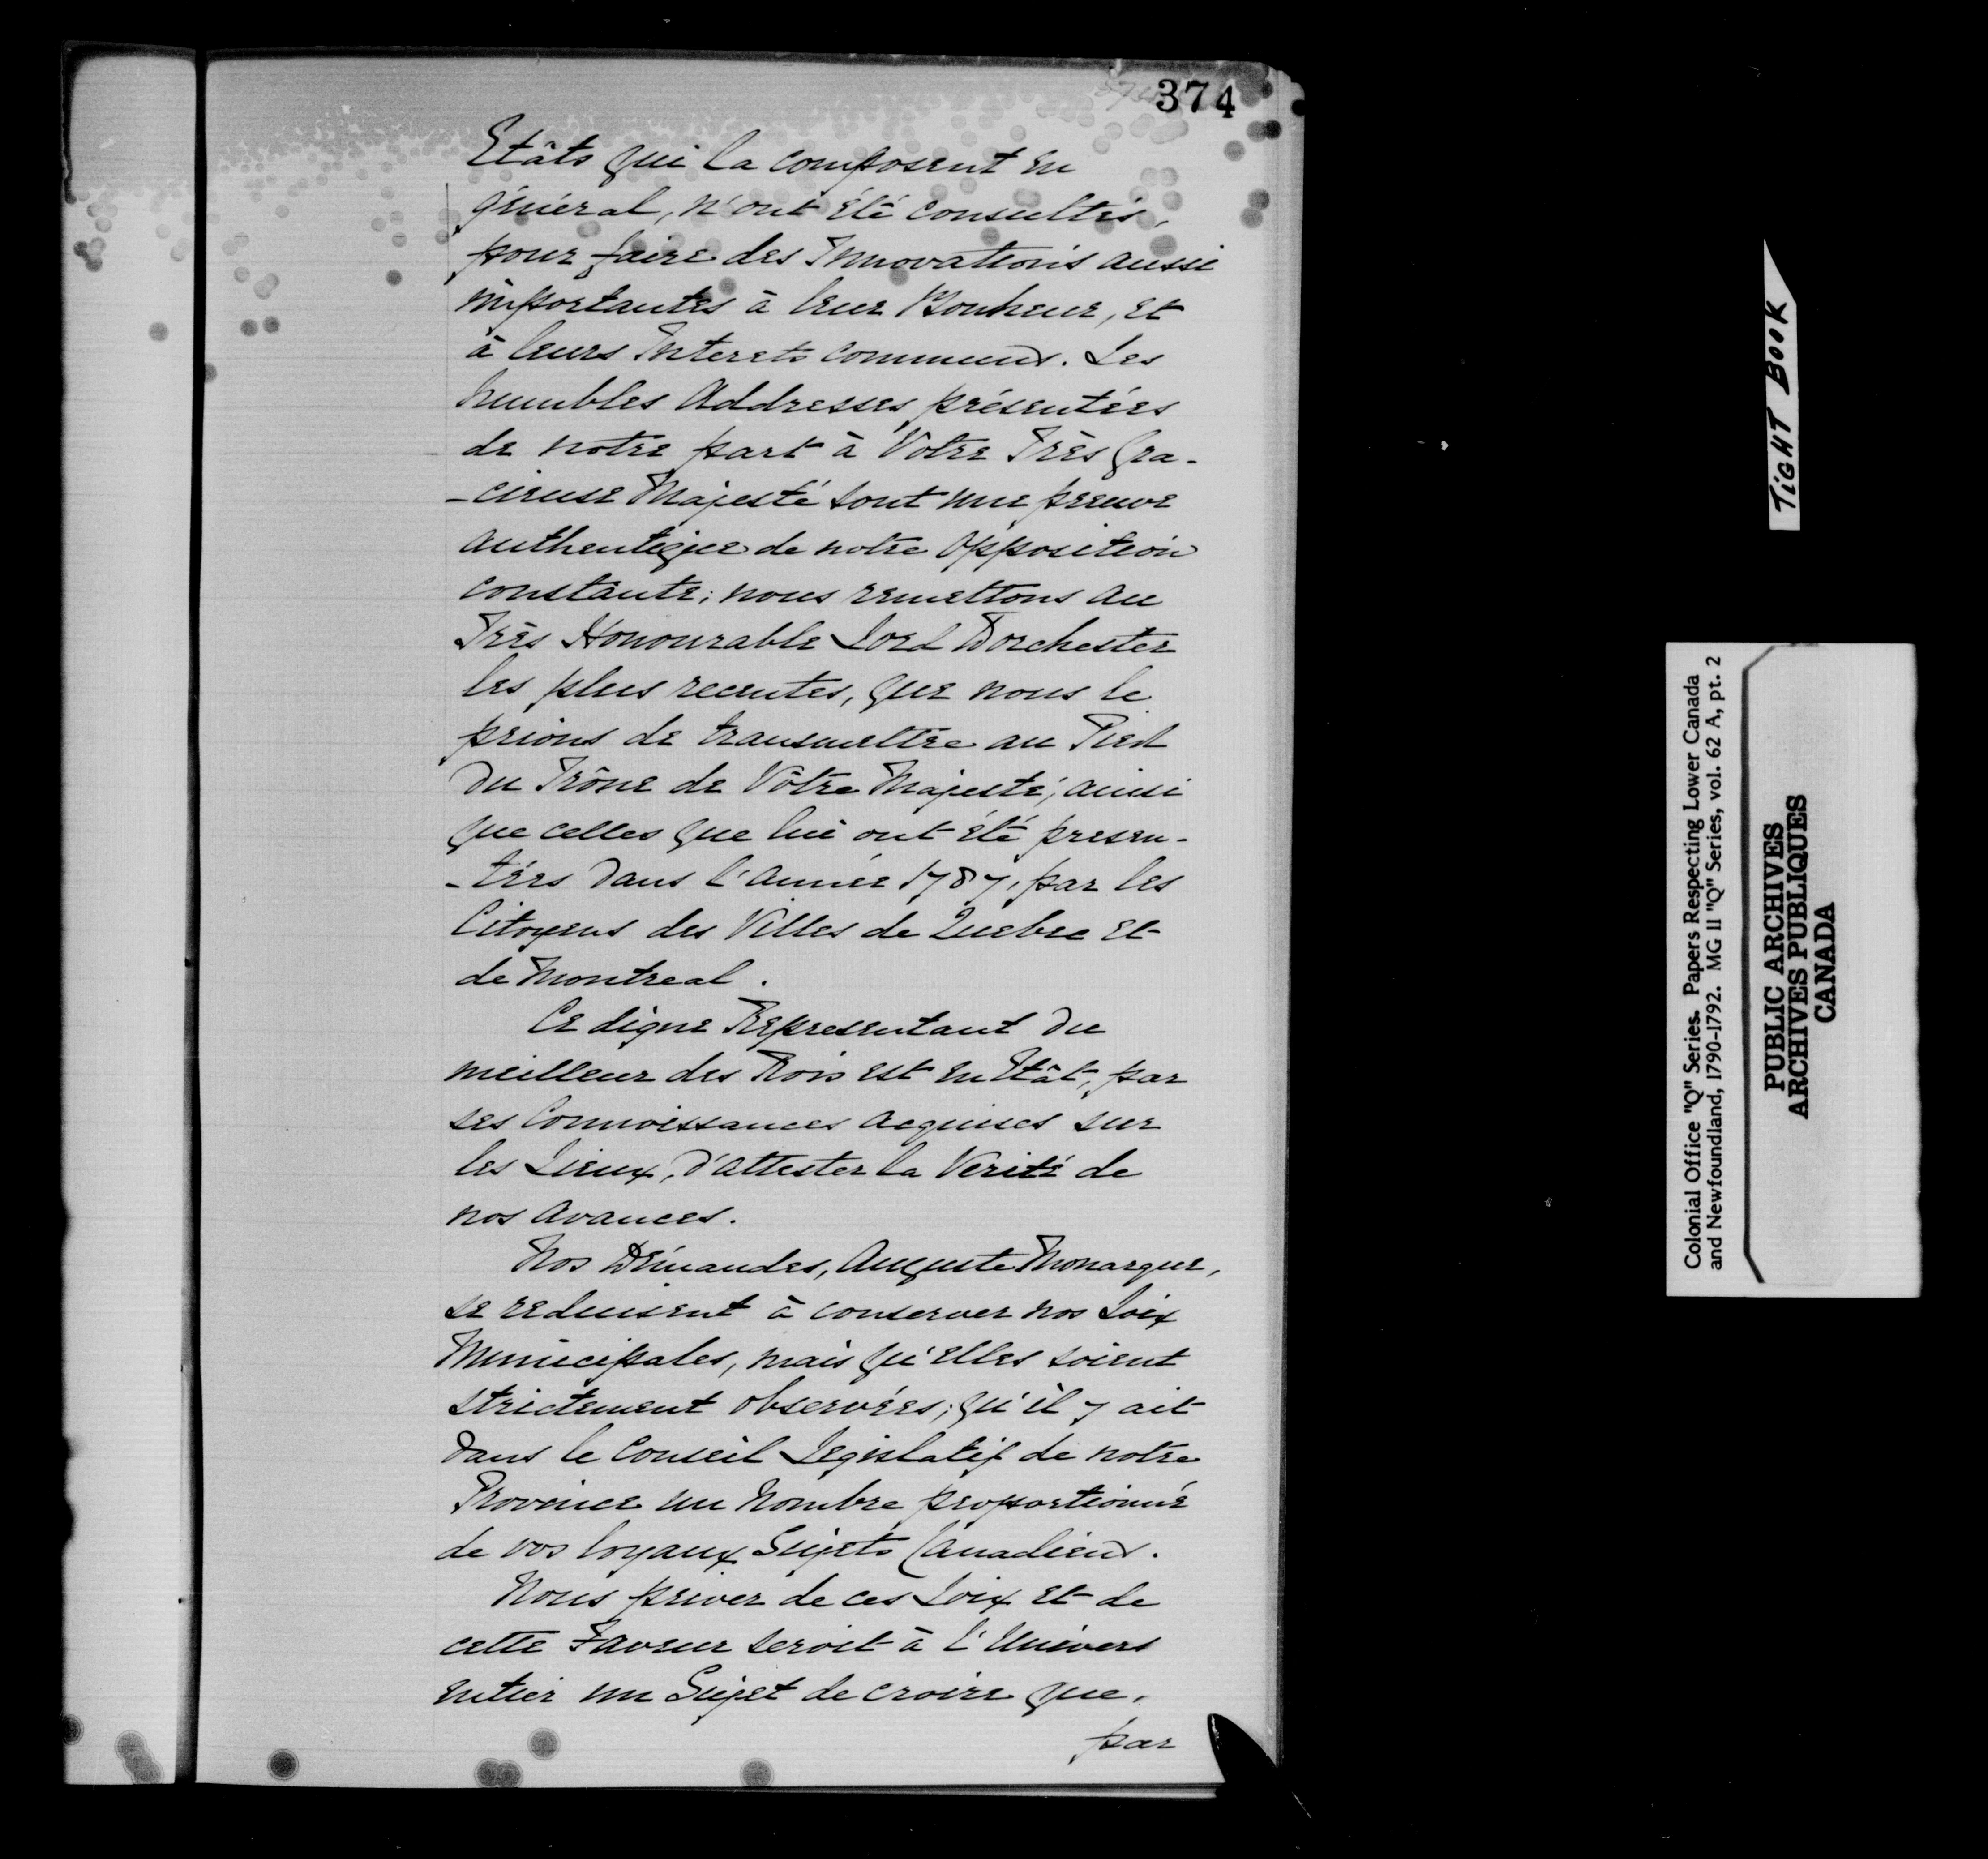 374
Etâts qui la composent en
général, n'ont été consultés,
pour faire des Innovations aussi
importantes à leur Bonheur, et
à leurs Interets communs. Les
humbles Addresses présentées
de notre part à Votre Très Gra-
-cieuse Majesté sont une preuve
authentique de notre Opposition
constante; nous remettons au
Très Honourable Lord Dorchester
les plus recentes, que nous le
prions de transmettre au Pied
du Trône de Vôtre Majesté, ainsi
que celles que lui ont été presen-
-tées dans l'année 1787, par les
Citoyens des Villes de Quebec et
de Montreal.
Ce digne Representant du
meilleur des Rois est en Etât, par
ses Connoissances acquises sur
les Lieux, d'attester la Verité de
nos avances.
Nos Démandes, Auguste Monarque,
se reduisent à conserver nos Loix
Municipales, mais qu'elles soient
strictement observées; qu'il y ait
dans le Conseil Legislatif de notre
Province un nombre proportionné
de vos loyaux Sujets Canadiens.
Nous priver de ces Loix et de
cette Faveur seroit à l'Univers
entier un Sujet de croire que,
par
TiGHT BOOK
Colonial Office "Q" Series. Papers Respecting Lower Canada
and Newfoundland, 1790-1792. MG 11 "Q" Series, vol. 62 A, pt. 2
PUBLIC ARCHIVES
ARCHIVES PUBLIQUES
CANADA